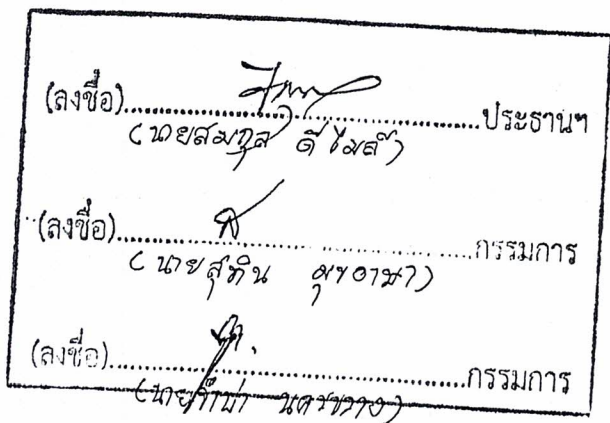 (ลงชื่อ)........................ประธานฯ
(นายสมกุล ดีไมล์)
(ลงชื่อ)........................กรรมการ
(นายสุทิน
(ลงชื่อ)........................กรรมการ
(นาย นครขวาง)